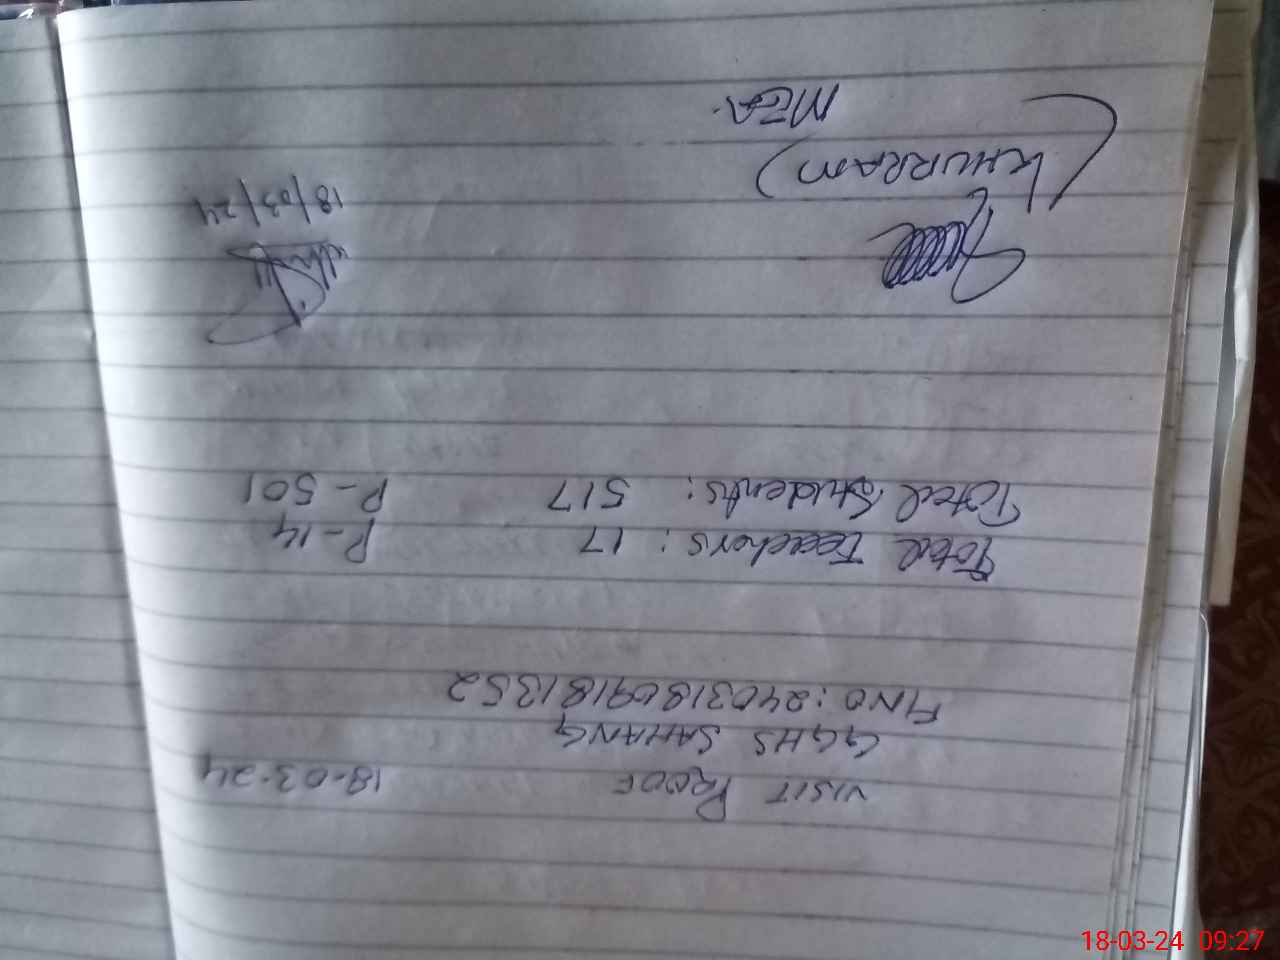 VISIT PROOF 18-03-24
GGHS SAHANG
FINO: 24031809181352
Total Teachers: 17 P-14
Total Students: 517 P-501
18/03/24
(KHURRAM)
MEA.
18-03-24 09:27